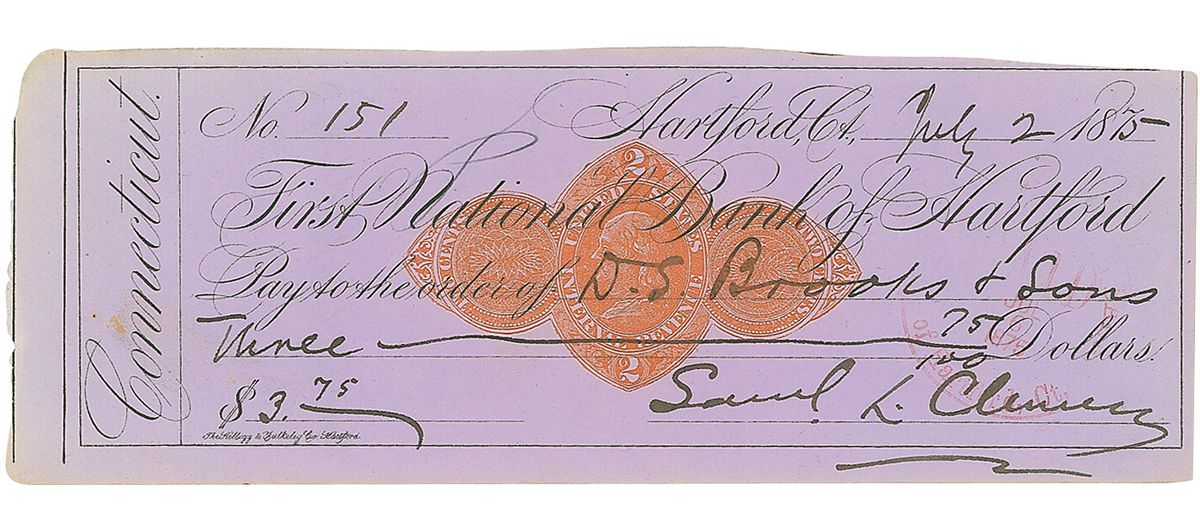 Connecticut.
No. 151 Hartford, Ct., July 2 1875
First National Bank of Hartford
Pay to the order of D. S. Brooks & Sons
Three 75/100 Dollars.
$ 3.75
Saml L. Clemens
The Kellogg & Bulkeley Co. Hartford.
2
UNITED STATES
INTERNAL REVENUE
2
TWO CENTS